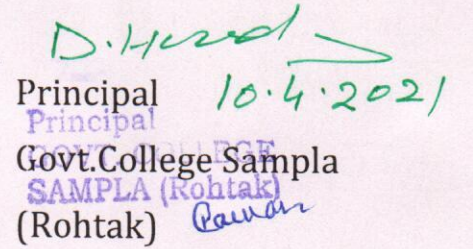 10.4.2021
Principal
Principal
Govt.College Sampla
GOVT. COLLEGE
SAMPLA (Rohtak)
(Rohtak)